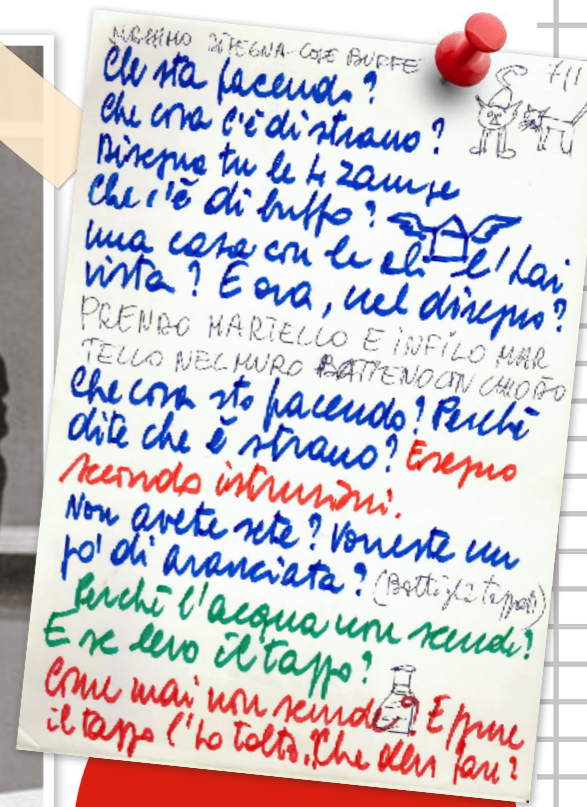 MASSIMO DISEGNA - COSE BUFFE
7/1
Che sta facendo?
Che cosa c'è di strano?
Disegna tu le 4 zampe
Che c'è di buffo?
una casa con le ali l'hai
vista? E ora, nel disegno?
PRENDO MARTELLO E INFILO MAR
TELLO NEL MURO BATTENDO CON CHIODO
Che cosa sto facendo? Perché
dite che è strano? Eseguo
secondo istruzioni.
Non avete sete? Vorreste un
po' di aranciata? (Bottiglia tappata)
Perché l'acqua non scende?
E se levo il tappo?
Come mai non scende? Eppure
il tappo l'ho tolto. Che devi fare?